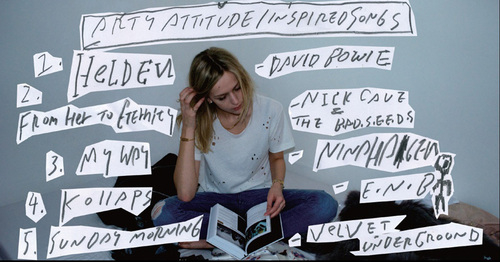 ARTY ATTITUDE/INSPIRED SONGS
1. HELDEN - DAVID BOWIE
2. FROM HER TO ETERNITY - NICK CAVE & THE BAD.SEEDS
3. MY WAY - NINA HAGEN
4. KOLLAPS - E.N.B
5. SUNDAY MORNING - VELVET UNDERGROUND